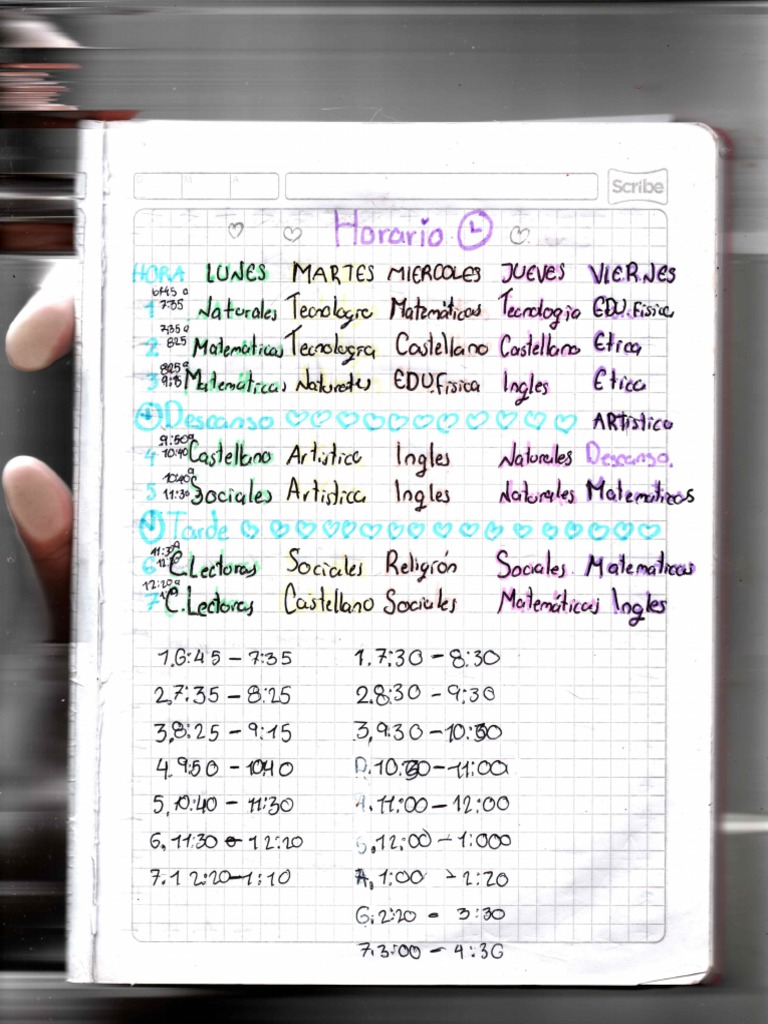 Scribe
Horario
HORA LUNES MARTES MIERCOLES JUEVES VIERNES
1 6:45 a 7:35 Naturales Tecnologia Matemáticas Tecnologia EDU.Fisica
2 7:35 a 825 Matemáticas Tecnologia Castellano Castellano Etica
3 825 a 9:15 Matemáticas Naturales EDU.Fisica Ingles Etica
Descanso ARTistica
4 9:50 a 10:40 Castellano Artistica Ingles Naturales Descanso.
5 1040 a 11:30 Sociales Artistica Ingles Naturales Matematicas
Tarde
6 11:30 a C.Lectoras Sociales Religión Sociales. Matematicas
7 12:20 a C.Lectoras Castellano Sociales Matemáticas Ingles
1.6:45 - 7:35 1.7:30 - 8:30
2,7:35 - 8:25 2.8:30 - 9:30
3,8:25 - 9:15 3,9:30 - 10:30
4.9:50 - 10:40 D.10:30 - 11:00
5,10:40 - 11:30 4.11:00 - 12:00
6,11:30 - 12:20 5,12:00 - 1:000
7.12:20 - 1:10 A,1:00 - 2:20
6.2:20 - 3:30
7.3:00 - 4:30